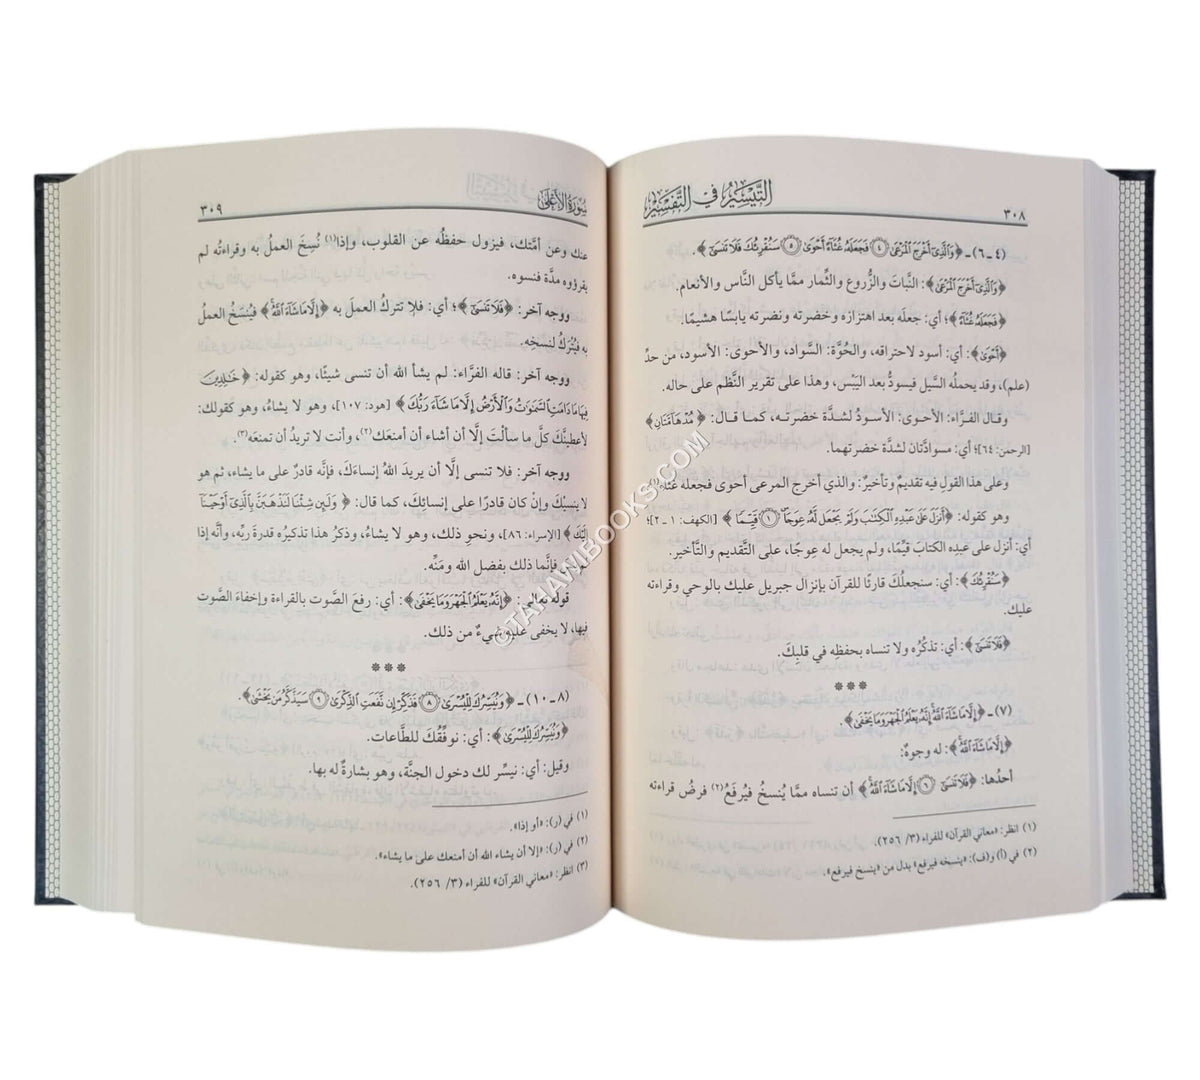 ٣٠٨
التيسير في التفسير
(٤ ـ ٦) ـ ﴿وَالَّذِي أَخْرَجَ الْمَرْعَىٰ ۝٤ فَجَعَلَهُ غُثَاءً أَحْوَىٰ ۝٥ سَنُقْرِئُكَ فَلَا تَنسَىٰ﴾.
﴿وَالَّذِي أَخْرَجَ الْمَرْعَىٰ﴾: النَّباتَ والزُّروع والثِّمار ممَّا يأكل النَّاس والأنعام.
﴿فَجَعَلَهُ غُثَاءً﴾؛ أي: جعلَه بعد اهتزازه وخضرته ونضرته يابسًا هشيمًا.
﴿أَحْوَىٰ﴾: أي: أسود لاحتراقه، والحُوَّة: السَّواد، والأحوى: الأسود، من حدِّ
(علم)، وقد يحملُه السَّيل فيسودُّ بعد اليَبْس، وهذا على تقرير النَّظم على حاله.
وقال الفرَّاء: الأحوى: الأسودُ لشدَّة خضرته، كما قال: ﴿مُدْهَامَّتَانِ﴾
[الرحمن: ٦٤]؛ أي: مسوادَّتان لشدَّة خضرتهما.
وعلى هذا القولِ فيه تقديمٌ وتأخيرٌ: والذي أخرج المرعى أحوى فجعله غُثاء(١)
وهو كقوله: ﴿أَنزَلَ عَلَىٰ عَبْدِهِ الْكِتَابَ وَلَمْ يَجْعَل لَّهُ عِوَجًا ۝١ قَيِّمًا﴾ [الكهف: ١ ـ ٢]؛
أي: أنزل على عبدِه الكتابَ قيِّمًا، ولم يجعل له عِوجًا، على التَّقديم والتَّأخير.
﴿سَنُقْرِئُكَ﴾: أي: سنجعلُكَ قارئًا للقرآن بإنزال جبريل عليك بالوحي وقراءته
عليك.
﴿فَلَا تَنسَىٰ﴾: أي: تذكُرُه ولا تنساه بحفظه في قلبِكَ.
***
(٧) ـ ﴿إِلَّا مَا شَاءَ اللَّهُ إِنَّهُ يَعْلَمُ الْجَهْرَ وَمَا يَخْفَىٰ﴾.
﴿إِلَّا مَا شَاءَ اللَّهُ﴾: له وجوهٌ:
أحدُها: ﴿فَلَا تَنسَىٰ ۝٦ إِلَّا مَا شَاءَ اللَّهُ﴾ أن تنساه ممَّا يُنسخُ فيُرفَعُ(٢) فرضُ قراءته
(١) انظر: «معاني القرآن» للفراء (٣/ ٢٥٦).
(٢) في (أ) و(ف): «ينسخه فيرفع» بدل من «ينسخ فيرفع».
سورة الأعلى
٣٠٩
عنك وعن أمَّتك، فيزول حفظُه عن القلوب، وإذا(١) نُسِخَ العملُ به وقراءتُه لم
يقرؤوه مدَّة فنسوه.
ووجه آخر: ﴿فَلَا تَنسَىٰ﴾؛ أي: فلا تتركُ العملَ به ﴿إِلَّا مَا شَاءَ اللَّهُ﴾ فيُنسَخُ العملُ
به فيُترَكُ لنسخِه.
ووجه آخر: قاله الفرَّاء: لم يشأ الله أن تنسى شيئًا، وهو كقوله: ﴿خَالِدِينَ
فِيهَا مَا دَامَتِ السَّمَاوَاتُ وَالْأَرْضُ إِلَّا مَا شَاءَ رَبُّكَ﴾ [هود: ١٠٧]، وهو لا يشاءُ، وهو كقولك:
لأعطينَّكَ كلَّ ما سألتَ إلَّا أن أشاء أن أمنعَك(٢)، وأنت لا تريدُ أن تمنعَه(٣).
ووجه آخر: فلا تنسى إلَّا أن يريدَ اللهُ إنساءَكَ، فإنَّه قادرٌ على ما يشاء، ثم هو
لا ينسيْكَ وإن كان قادرًا على إنسائِكَ، كما قال: ﴿وَلَئِن شِئْنَا لَنَذْهَبَنَّ بِالَّذِي أَوْحَيْنَا
إِلَيْكَ﴾ [الإسراء: ٨٦]، ونحوِ ذلك، وهو لا يشاء، وذكرُ هذا تذكيرُه قدرةَ ربِّه، وأنَّه إذا
فإنَّما ذلك بفضل الله ومَنِّه.
قوله تعالى: ﴿إِنَّهُ يَعْلَمُ الْجَهْرَ وَمَا يَخْفَىٰ﴾: أي: رفعَ الصَّوت بالقراءة وإخفاءَ الصَّوت
فيها، لا يخفى عليه شيءٌ من ذلك.
***
(٨ ـ ١٠) ـ ﴿وَنُيَسِّرُكَ لِلْيُسْرَىٰ ۝٨ فَذَكِّرْ إِن نَّفَعَتِ الذِّكْرَىٰ ۝٩ سَيَذَّكَّرُ مَن يَخْشَىٰ﴾.
﴿وَنُيَسِّرُكَ لِلْيُسْرَىٰ﴾: أي: نوفِّقُكَ للطَّاعات.
وقيل: أي: نيسِّر لك دخول الجنَّة، وهو بشارةٌ له بها.
(١) في (ر): «أو إذا».
(٢) في (ر): «إلا أن يشاء الله أن أمنعك على ما يشاء».
(٣) انظر: «معاني القرآن» للفراء (٣/ ٢٥٦).
©TAJAWIBOOKS.COM